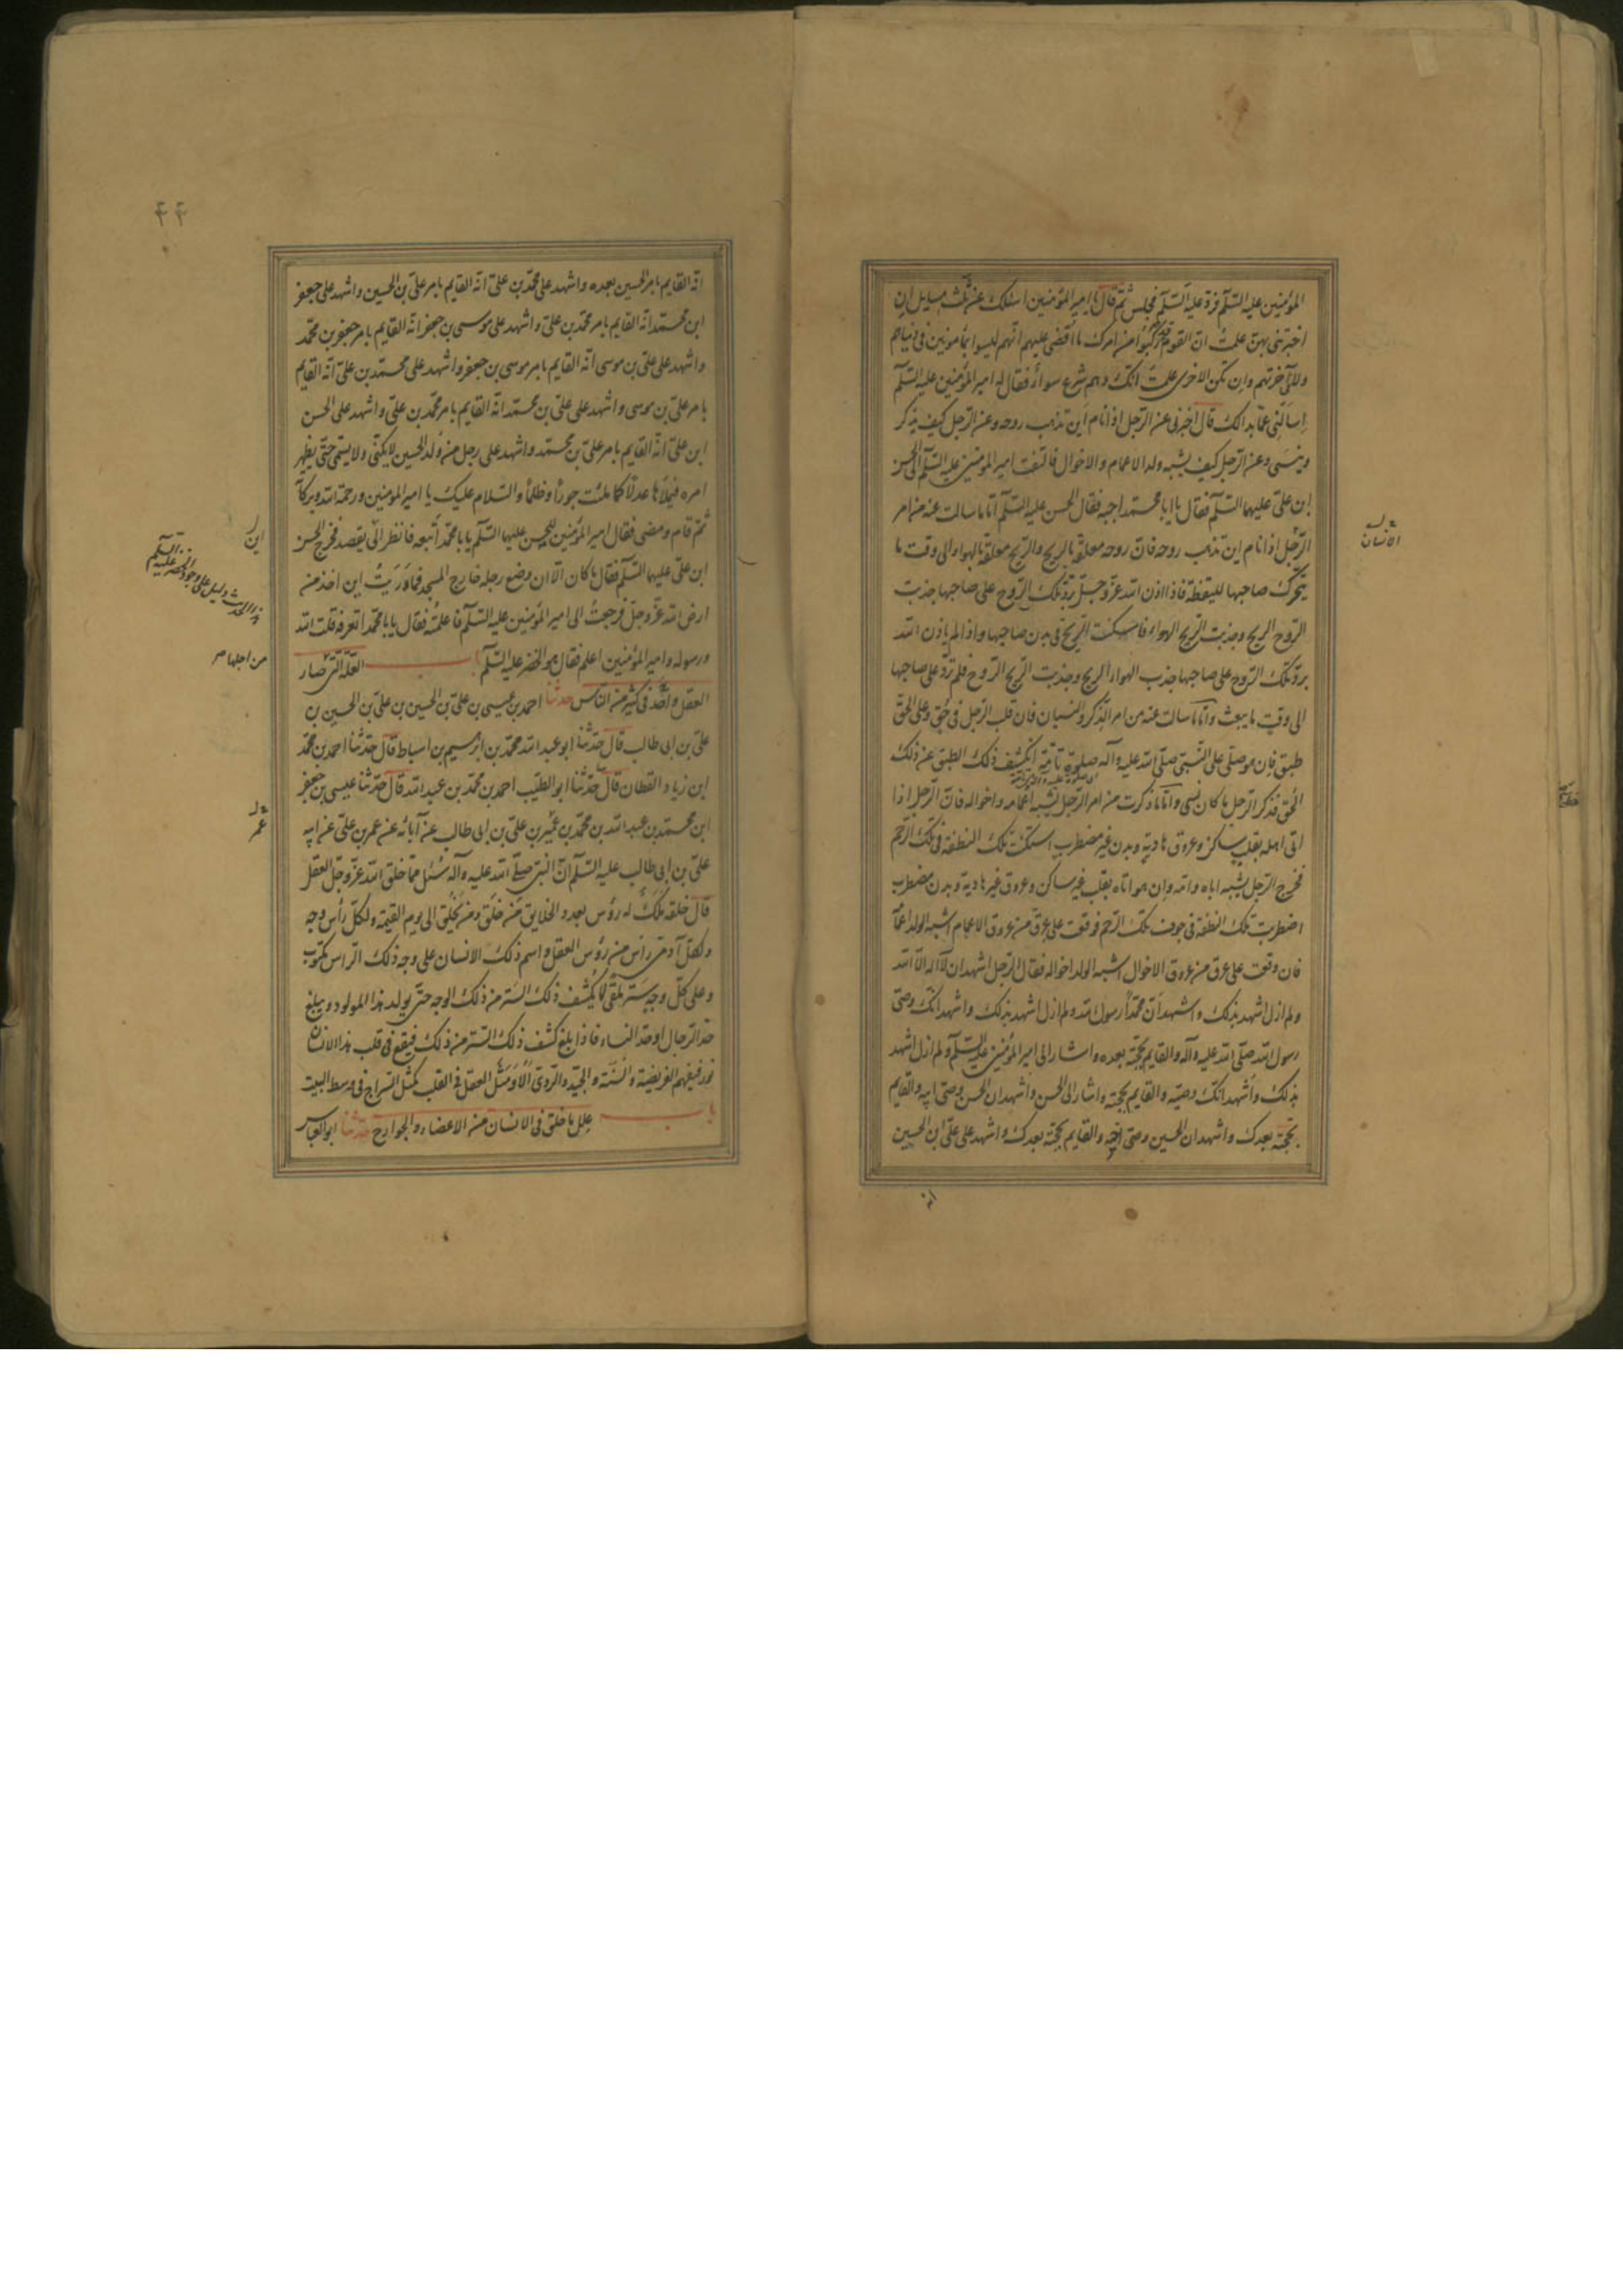 المؤمنين عليه السّلم فردّ عليه السّلم فجلس ثمّ قال يا امير المؤمنين اسئلك عن ثلث مسايل ان
اخبرتنى بهنّ علمت انّ القوم قد ركبوا من امرك ما اقضى عليهم انّهم ليسوا بمأمونين فى دنياهم
ولا فى آخرتهم وان يكن الاخرى علمت انّك وهم شرع سواء فقال له امير المؤمنين عليه السّلم
اسألنى عمّا بدالك قال اخبرنى عن الرّجل اذا نام اين تذهب روحه وعن الرّجل كيف يذكر
وينسى وعن الرّجل كيف يشبه ولد الاعمام والاخوال فالتفت امير المؤمنين عليه السّلم الى الحسن
ابن علىّ عليهما السّلم فقال يا ابا محمّد اجبه فقال الحسن عليه السّلم امّا ما سالت عنه من امر
الرّجل اذا نام اين تذهب روحه فانّ روحه معلّقة بالريح والرّيح معلّقة بالهواء الى وقت ما
يتحرّك صاحبها لليقظة فاذا اذن اللّه عزّ وجلّ بردّ تلك الرّوح على صاحبها جذبت
الرّوح الريح وجذبت الرّيح الهواء فاسكنت الرّيح فى بدن صاحبها واذا لم ياذن اللّه
بردّ تلك الرّوح على صاحبها جذب الهواء الريح وجذبت الرّيح الرّوح فلم تردّ على صاحبها
الى وقت ما يبعث وامّا ما سالت عنه من امر الذّكر والنسيان فان قلب الرّجل فى حُقّ وعلى الحقّ
طبق فان هو صلّى على النّبىّ صلّى اللّه عليه وآله صلوة تامّة انكشف ذلك الطبق عن ذلك
الحُقّ فذكر الرّجل ما كان نسى وامّا ما ذكرت من امر الرّجل يشبه اعمامه واخواله فانّ الرّجل اذا
اتى اهله بقلب ساكن وعروق هادية وبدن غير مضطرب استكنت تلك النطفة فى تلك الرّحم
فخرج الرّجل يشبه اباه وامّه وان هو اتاه بقلب غير ساكن وعروق غير هادية وبدن مضطرب
اضطربت تلك النطفة فى جوف تلك الرّحم فوقعت على عرق من عروق الاعمام اشبه الولد اعمامه
فان وقعت على عرق من عروق الاخوال اشبه الولد اخواله فقال الرّجل اشهد ان لا اله الّا اللّه
ولم ازل اشهد بذلك واشهد انّ محمّداً رسول اللّه ولم ازل اشهد بذلك واشهد انّك وصىّ
رسول اللّه صلّى اللّه عليه وآله والقايم بحجّته بعده واشار الى امير المؤمنين عليه السّلم ولم ازل اشهد
بذلك واشهد انّك وصيّه والقايم بحجّته واشار الى الحسن واشهد ان الحسن وصىّ ابيه والقايم
بحجّته بعدك واشهد ان الحسين وصىّ اخيه والقايم بحجّته بعدك واشهد على علىّ ابن الحسين
انه
الانسان
٤٤
انّه القايم بامر الحسين بعده واشهد على محمّد بن علىّ انّه القايم بامر علىّ بن الحسين واشهد على جعفر
ابن محمّد انّه القايم بامر محمّد بن علىّ واشهد على موسى بن جعفر انّه القايم بامر جعفر بن محمّد
واشهد على علىّ بن موسى انّه القايم بامر موسى بن جعفر واشهد على محمّد بن علىّ انّه القايم
بامر علىّ بن موسى واشهد على علىّ بن محمّد انّه القايم بامر محمّد بن علىّ واشهد على الحسن
ابن علىّ انّه القايم بامر علىّ بن محمّد واشهد على رجل من ولد الحسين لا يكنّى ولا يسمّى حتّى يظهر
امره فيملأها عدلاً كما ملئت جوراً وظلماً والسّلام عليك يا امير المؤمنين ورحمة اللّه وبركاته
ثمّ قام ومضى فقال امير المؤمنين للحسن عليهما السّلم يا با محمّد اتبعه فانظر اين يقصد فخرج الحسن
ابن علىّ عليهما السّلم فقال ما كان الّا ان وضع رجله خارج المسجد فما دريت اين اخذ من
ارض اللّه عزّ وجلّ فرجعت الى امير المؤمنين عليه السّلم فاعلمته فقال يا با محمّد اتعرفه قلت اللّه
ورسوله وامير المؤمنين اعلم فقال هو الخضر عليه السّلم باب العلّة الّتى صار
العقل واحد فى كثير من النّاس حدّثنا احمد بن عيسى بن علىّ بن الحسين بن علىّ بن الحسين بن
علىّ بن ابى طالب قال حدّثنا ابو عبد اللّه محمّد بن ابرهيم بن اسباط قال حدّثنا احمد بن محمّد
ابن زياد القطان قال حدّثنا ابو الطيّب احمد بن محمّد بن عبد اللّه قال حدّثنا عيسى بن جعفر
ابن محمّد بن عبد اللّه بن محمّد بن عمر بن علىّ بن ابى طالب عن آبائه عن عمر بن علىّ عن ابيه
علىّ بن ابى طالب عليه السّلم انّ النبىّ صلّى اللّه عليه وآله سئل ممّا خلق اللّه عزّ وجلّ العقل
قال خلقه ملك له رؤس بعدد الخلايق من خلق ومن يخلق الى يوم القيمة ولكلّ رأس وجه
ولكلّ آدمى راس من رؤس العقل واسم ذلك الانسان على وجه ذلك الراس مكتوب
وعلى كلّ وجه ستر ملقى لا يكشف ذلك السّتر من ذلك الوجه حتّى يولد هذا المولود ويبلغ
حدّ الرجال او حدّ النساء فاذا بلغ كشف ذلك السّتر من ذلك فيقع فى قلب هذا الانسان
نور فيفهم الفريضة والسّنّة والجيّد والردىّ الا ومثل العقل فى القلب كمثل السّراج فى وسط البيت
باب علل ما خلق فى الانسان من الاعضاء والجوارح حدّثنا ابو العباس
اين
هذا الحديث دليل على وجود الخضر عليه السلم
من اجلها صر
عمر